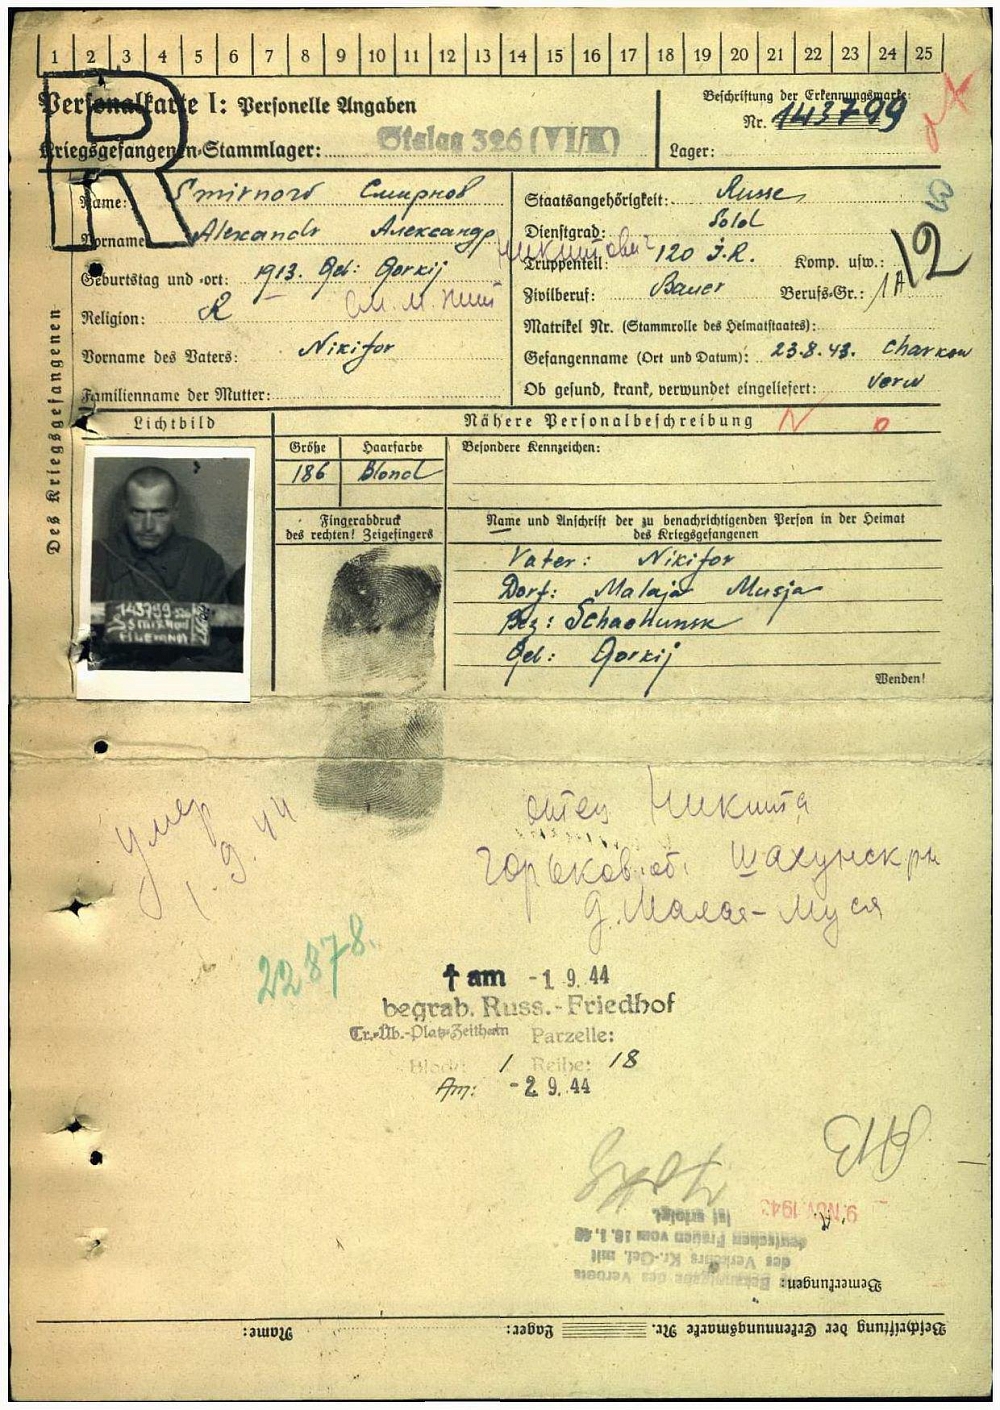 1 2 3 4 5 6 7 8 9 10 11 12 13 14 15 16 17 18 19 20 21 22 23 24 25
R
Personalkarte I: Personelle Angaben
Beschriftung der Erkennungsmarke:
Nr. 143799
Kriegsgefangenen-Stammlager: Stalag 326 (VI/K)
Lager:
Des Kriegsgefangenen
Name: Smirnow Смирнов
Vorname: Alexandr Александр Никитович
Geburtstag und -ort: 1913. Geb: Gorkij
Religion: R
Vorname des Vaters: Nikifor
Familienname der Mutter:
Staatsangehörigkeit: Russe
Dienstgrad: Sold
Truppenteil: 120 J.R. Komp. usw.: 12
Zivilberuf: Bauer Berufs-Gr.: 1A
Matrikel Nr. (Stammrolle des Heimatstaates):
Gefangenname (Ort und Datum): 23.8.43. Charkow
Ob gesund, krank, verwundet eingeliefert: verw
Lichtbild
Nähere Personalbeschreibung
Größe Haarfarbe Besondere Kennzeichen:
186 Blond
Fingerabdruck
des rechten! Zeigefingers
Name und Anschrift der zu benachrichtigenden Person in der Heimat
des Kriegsgefangenen
Vater: Nikifor
Dorf: Malaja Musja
Bez: Schachunsk
Geb: Gorkij
Wenden!
143799
умер
1.9.44
отец Никита
Горьков. об. Шахунск рн
д. Малая-Муся
22878.
† am -1.9.44
begrab. Russ.-Friedhof
Tr.-Üb.-Platz-Zeithain Parzelle:
Block: 1 Reihe: 18
Am: -2.9.44
9. NOV. 1943
ist erfolgt
deutschen Frauen vom
des Verkehrs Kr.-Gef. mit
Bekanntgabe des Verbots
Bemerkungen:
Beschriftung der Erkennungsmarke Nr. Lager: Name: